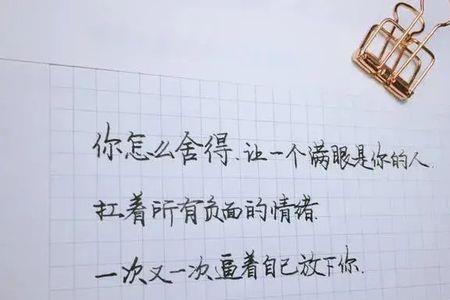 你怎么舍得、让一个满眼是你的人、
扛着所有负面的情绪、
一次又一次逼着自己放下你、